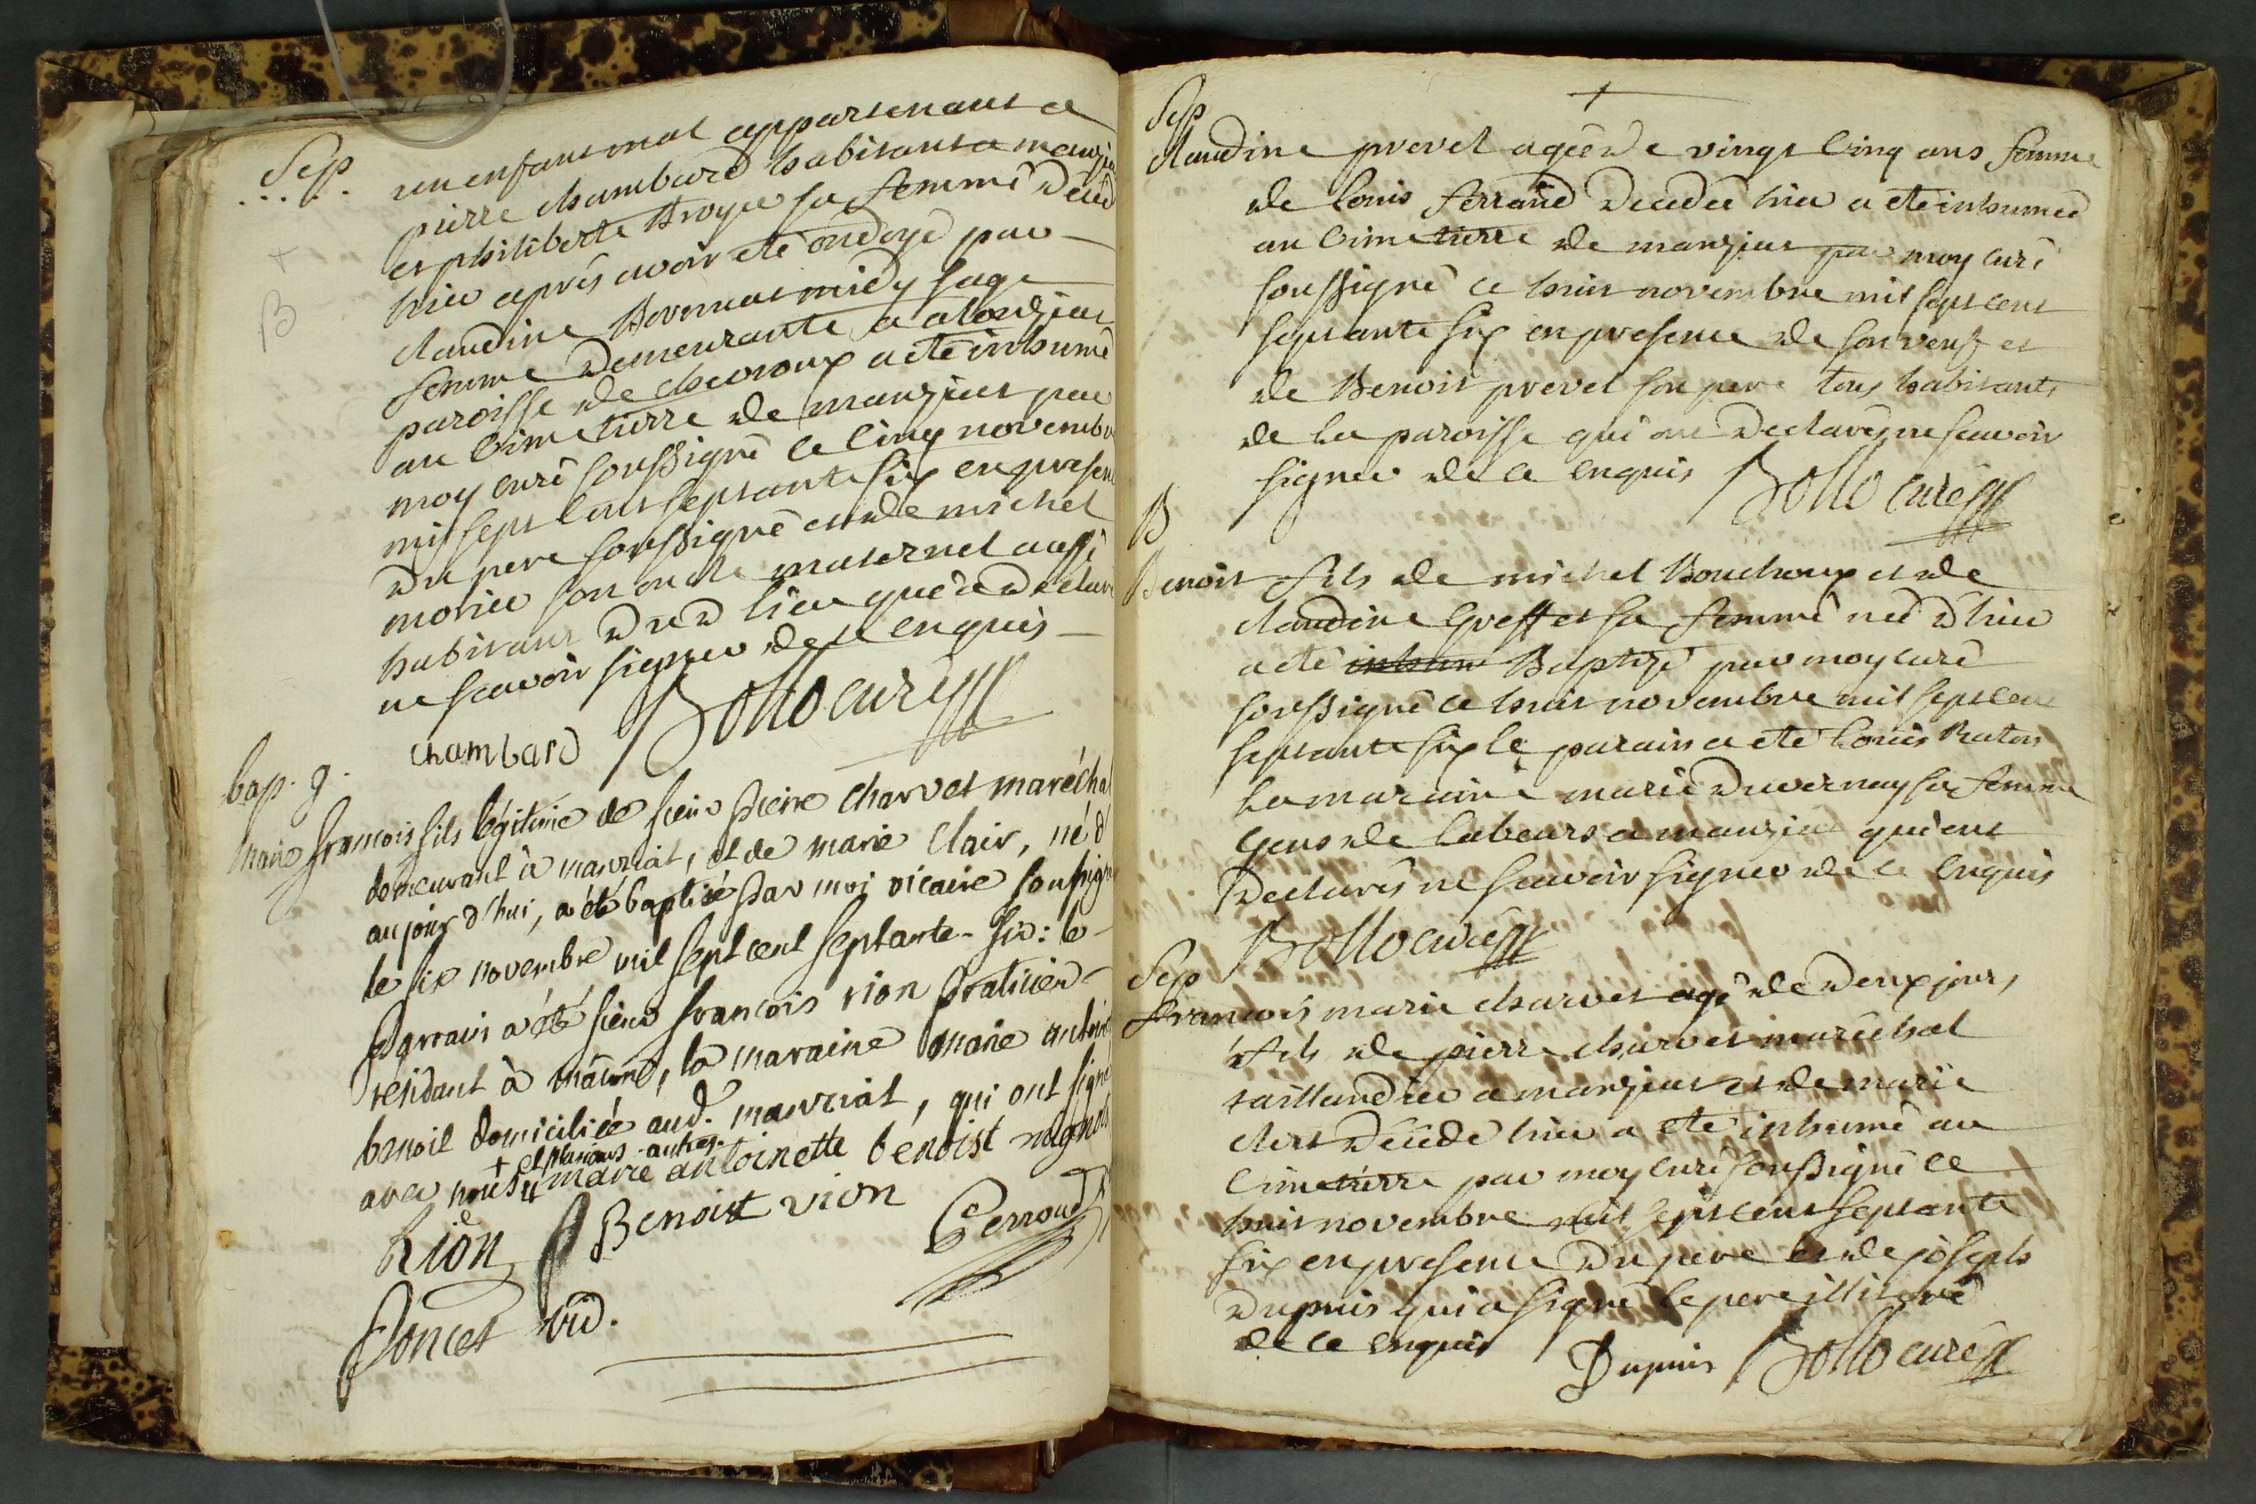 Sep
un enfant mal appartenant a
pierre chambard habitant a manzia
et philiberte Broyer sa femme deced
hier après avoir eté ondoyé par
claudine Bovernat midy sage
femme demeurante a
paroisse de chevroux a eté inhumé
au Cimetierre de manziat par
moy curé soussigné ce Cinq novembre
mil sept Cent septante six en presen
du pere soussigné et de michel
morier son oncle maternel aussi
habitant dud lieu qui a declaré
ne scavoir signer de ce enquis
chambard Bollo curé
bap. g.
marie françois fils légitime de sieur Pierre Charvet maréchal
demeurant à manziat, et de marie Clair, né d
aujourd'hui, a été baptisé par moi vicaire soussigné
le six novembre mil sept cent septante-six: le
parrain a été sieur françois vion praticien
résidant à mâcon, la maraine marie antoin
benoit domiciliée aud. manziat, qui ont signé
+ et plusieurs autres
avec nous marie antoinette bénoist
Rion Benoist vion Perroud
Poncet vic.
Sep
Claudine prevel agée de vingt Cinq ans femme
de louis ferrand decedée hier a eté inhumée
au Cimetierre de manziat par moy curé
soussigné ce huit novembre mil sept cent
septante six en presence de son veuf et
de Benoit prevel son pere tous habitants
de la paroisse qui ont declarés ne scavoir
signer de ce enquis Bollo curé
B
Benoit fils de michel Bouchoux et de
claudine Greffet sa femme né d'hier
a eté inhum Baptizé par moy curé
soussigné ce huit novembre mil sept cent
septante six le parain a eté louis Raton
la maraine marie duvernay sa femme
Gens de labeurs a manziat qui ont
declarés ne scavoir signer de ce enquis
Bollo curé
Sep
francois marie charvet agé de deux jours
fils de pierre charvet maréchal
taillandier a manziat et de marie
clert décédé hier a eté inhumé au
Cimetierre par moy curé soussigné ce
huit novembre mil sept cent septante
six en presence du pere et de joseph
Dupuis qui a signé le pere illiteré
de ce enquis
Dupuis Bollo curé